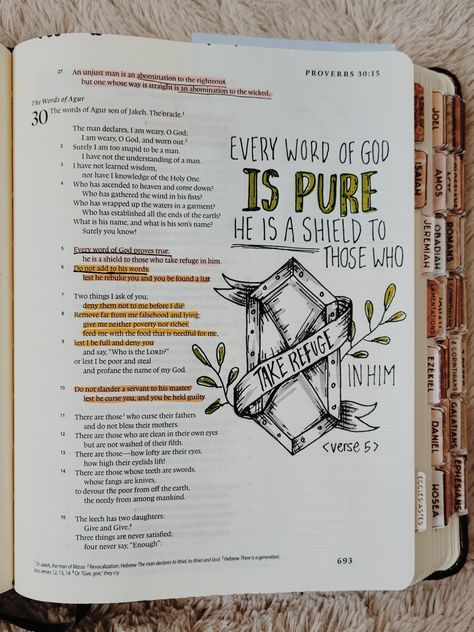 PROVERBS 30:15
27 An unjust man is an abomination to the righteous,
but one whose way is straight is an abomination to the wicked.
The Words of Agur
30 The words of Agur son of Jakeh. The oracle.1
The man declares, I am weary, O God;
I am weary, O God, and worn out.2
2 Surely I am too stupid to be a man.
I have not the understanding of a man.
3 I have not learned wisdom,
nor have I knowledge of the Holy One.
4 Who has ascended to heaven and come down?
Who has gathered the wind in his fists?
Who has wrapped up the waters in a garment?
Who has established all the ends of the earth?
What is his name, and what is his son's name?
Surely you know!
5 Every word of God proves true;
he is a shield to those who take refuge in him.
6 Do not add to his words,
lest he rebuke you and you be found a liar.
7 Two things I ask of you;
deny them not to me before I die:
8 Remove far from me falsehood and lying;
give me neither poverty nor riches;
feed me with the food that is needful for me,
9 lest I be full and deny you
and say, "Who is the LORD?"
or lest I be poor and steal
and profane the name of my God.
10 Do not slander a servant to his master,
lest he curse you, and you be held guilty.
11 There are those3 who curse their fathers
and do not bless their mothers.
12 There are those who are clean in their own eyes
but are not washed of their filth.
13 There are those—how lofty are their eyes,
how high their eyelids lift!
14 There are those whose teeth are swords,
whose fangs are knives,
to devour the poor from off the earth,
the needy from among mankind.
15 The leech has two daughters:
Give and Give.4
Three things are never satisfied;
four never say, "Enough":
1 Or Jakeh, the man of Massa 2 Revocalization; Hebrew The man declares to Ithiel, to Ithiel and Ucal 3 Hebrew There is a generation;
also verses 12, 13, 14 4 Or "Give, give," they cry
693
EVERY WORD OF GOD
IS PURE
HE IS A SHIELD TO
THOSE WHO
TAKE REFUGE
IN HIM
<verse 5>
SONG OF
ISAIAH
JEREMIAH
LAMENTATIONS
EZEKIEL
DANIEL
HOSEA
ECCLESIASTES
JOEL
AMOS
OBADIAH
ACTS
ROMANS
CORINTHIANS
GALATIANS
EPHESIANS